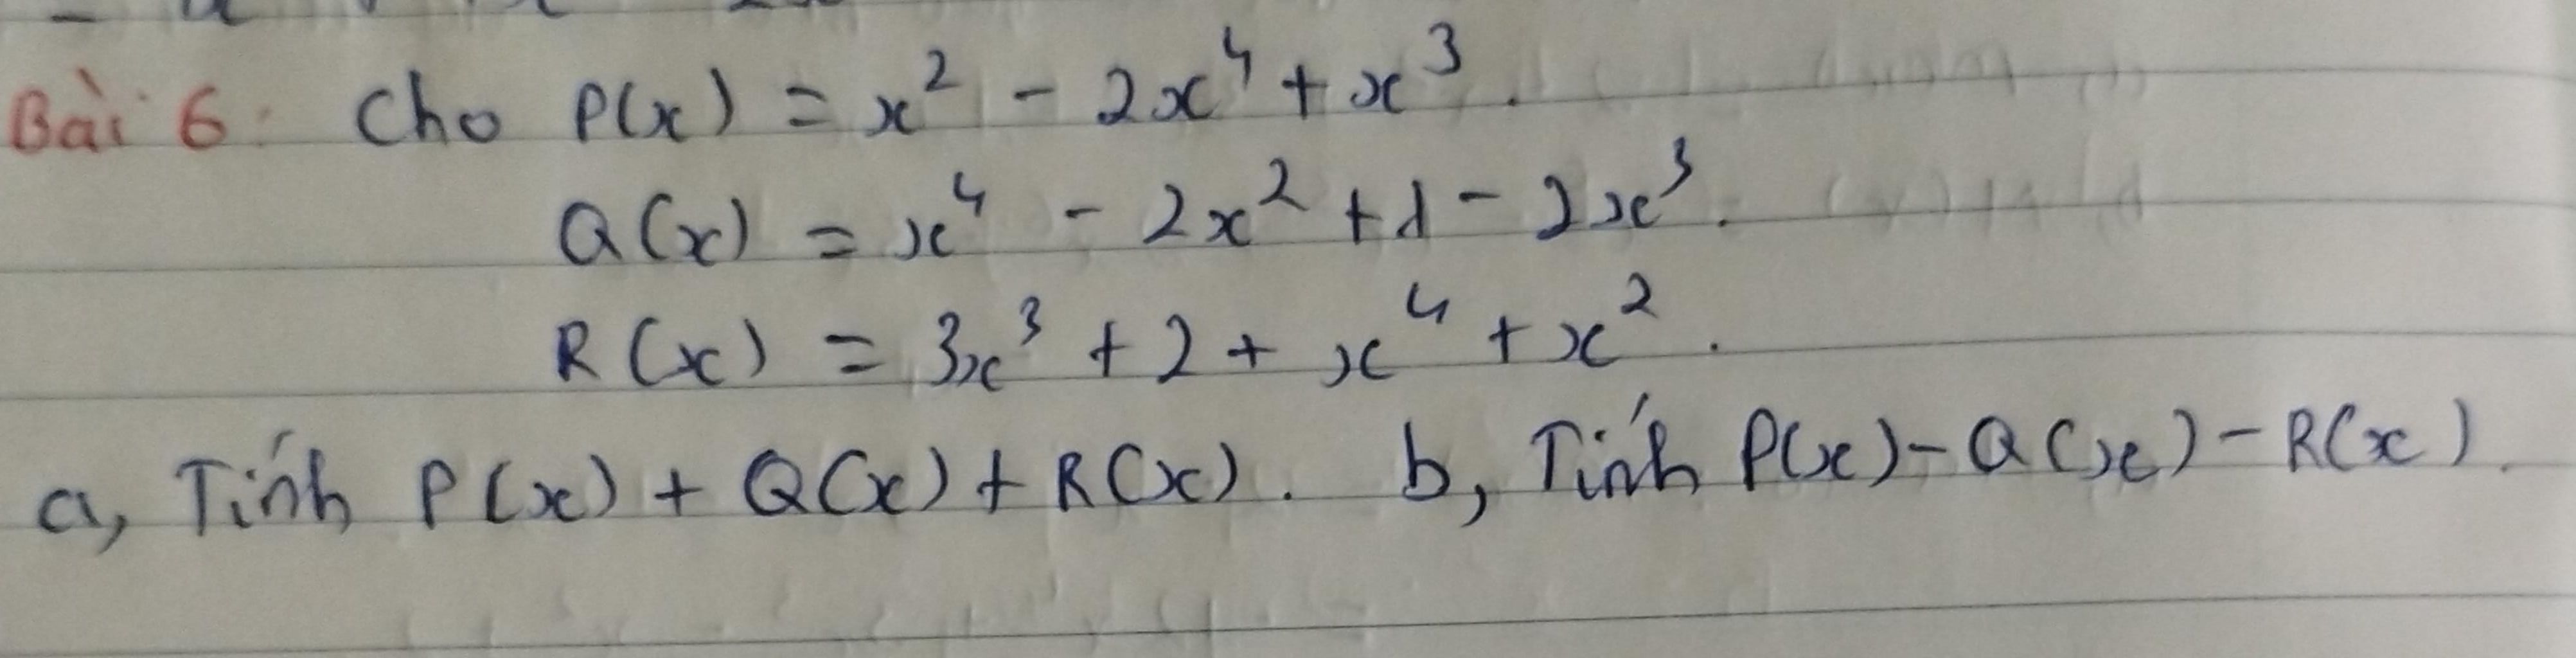 Bài 6: Cho P(x) = x² - 2x⁴ + x³.
Q(x) = x⁴ - 2x² + 1 - 2x³.
R(x) = 3x³ + 2 + x⁴ + x².
a, Tính P(x) + Q(x) + R(x). b, Tính P(x) - Q(x) - R(x).